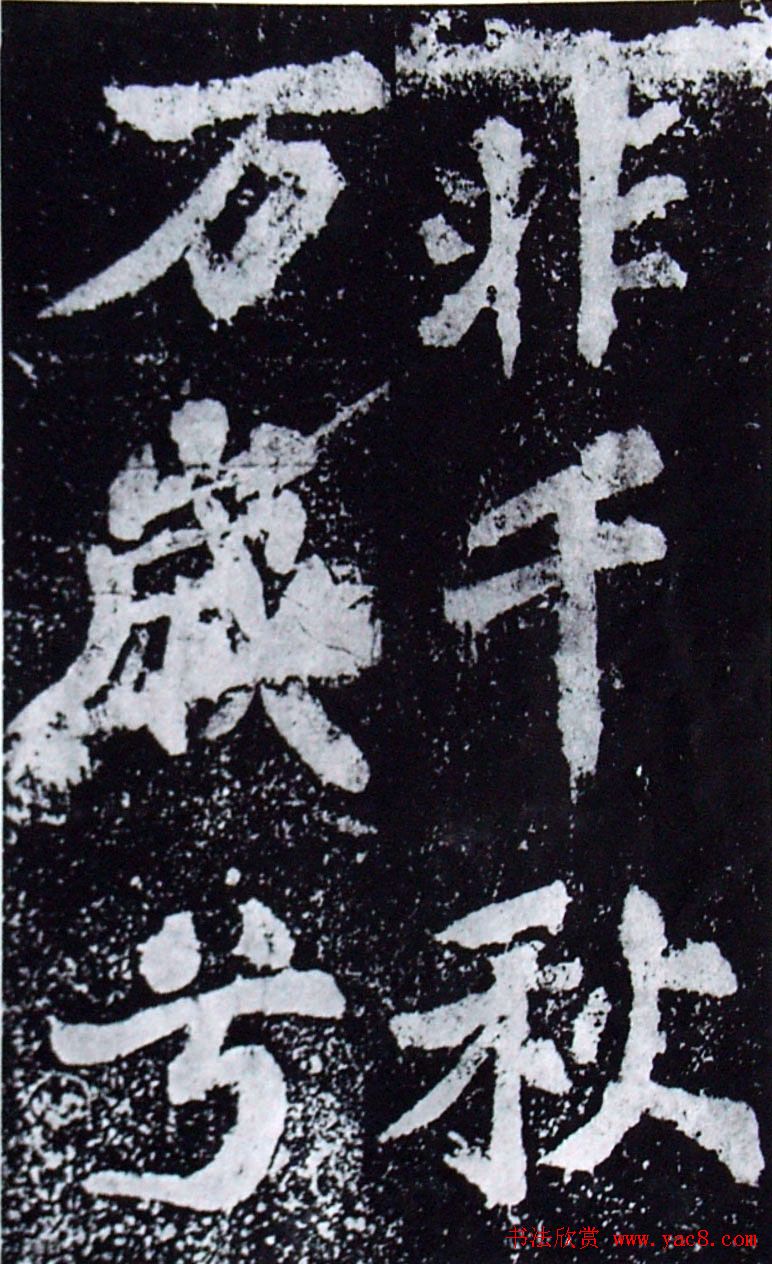 非千秋
万歲兮
书法欣赏 www.yac8.com